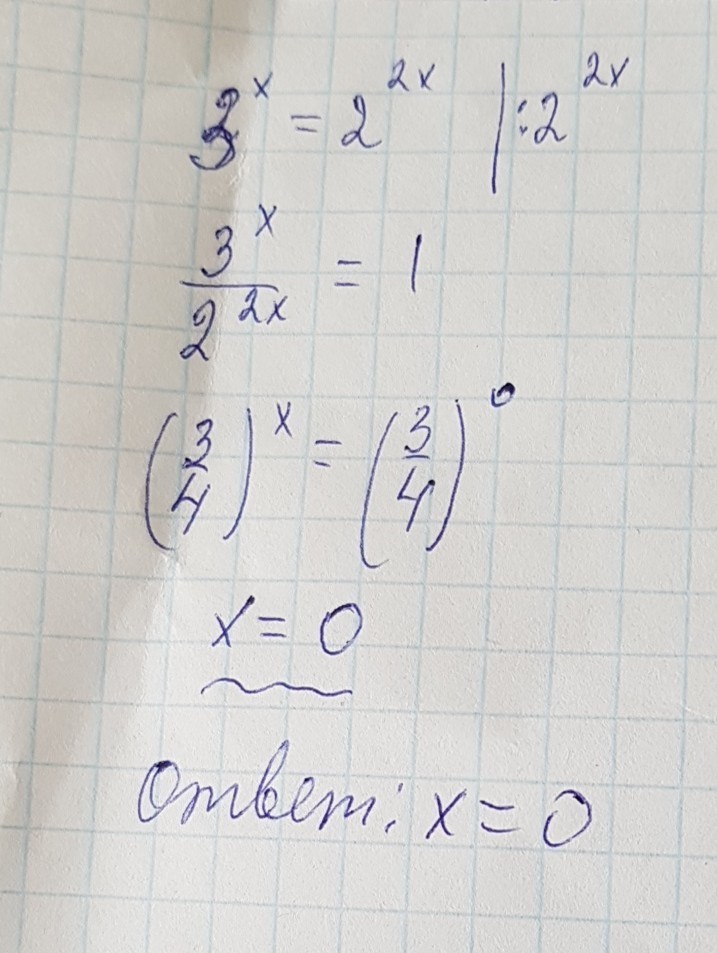 3^x = 2^{2x} | :2^{2x}
3^x / 2^{2x} = 1
(3/4)^x = (3/4)^0
x = 0
Ответ: x = 0